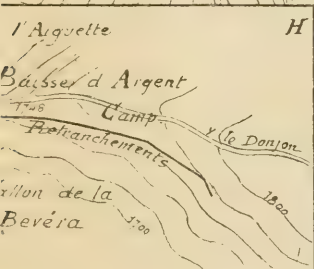 l'Aiguette
H
Baisse d'Argent
1748
Camp
Retranchements
le Donjon
Vallon de la
Bevéra
1800
1700